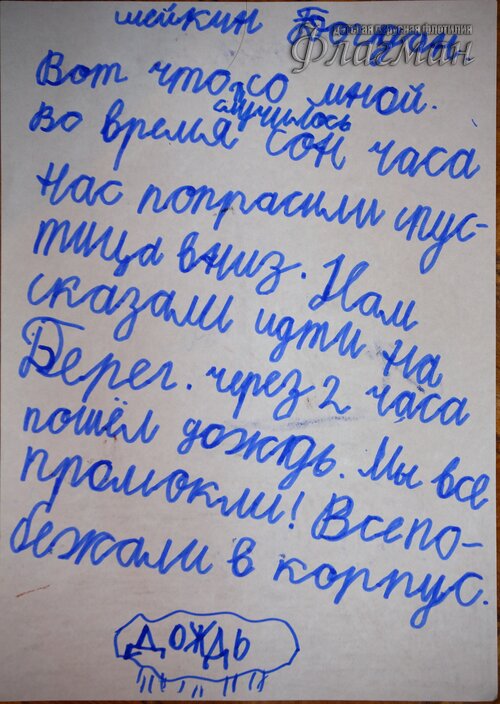 шейкин Богдан
детская парусная флотилия
Флагман
Вот что со мной.
случилось
Во время сон часа
нас попрасили спус-
тица вниз. Нам
сказали идти на
Берег. через 2 часа
пошёл дождь. Мы все
промокли! Все по-
бежали в корпус.
ДОЖДЬ